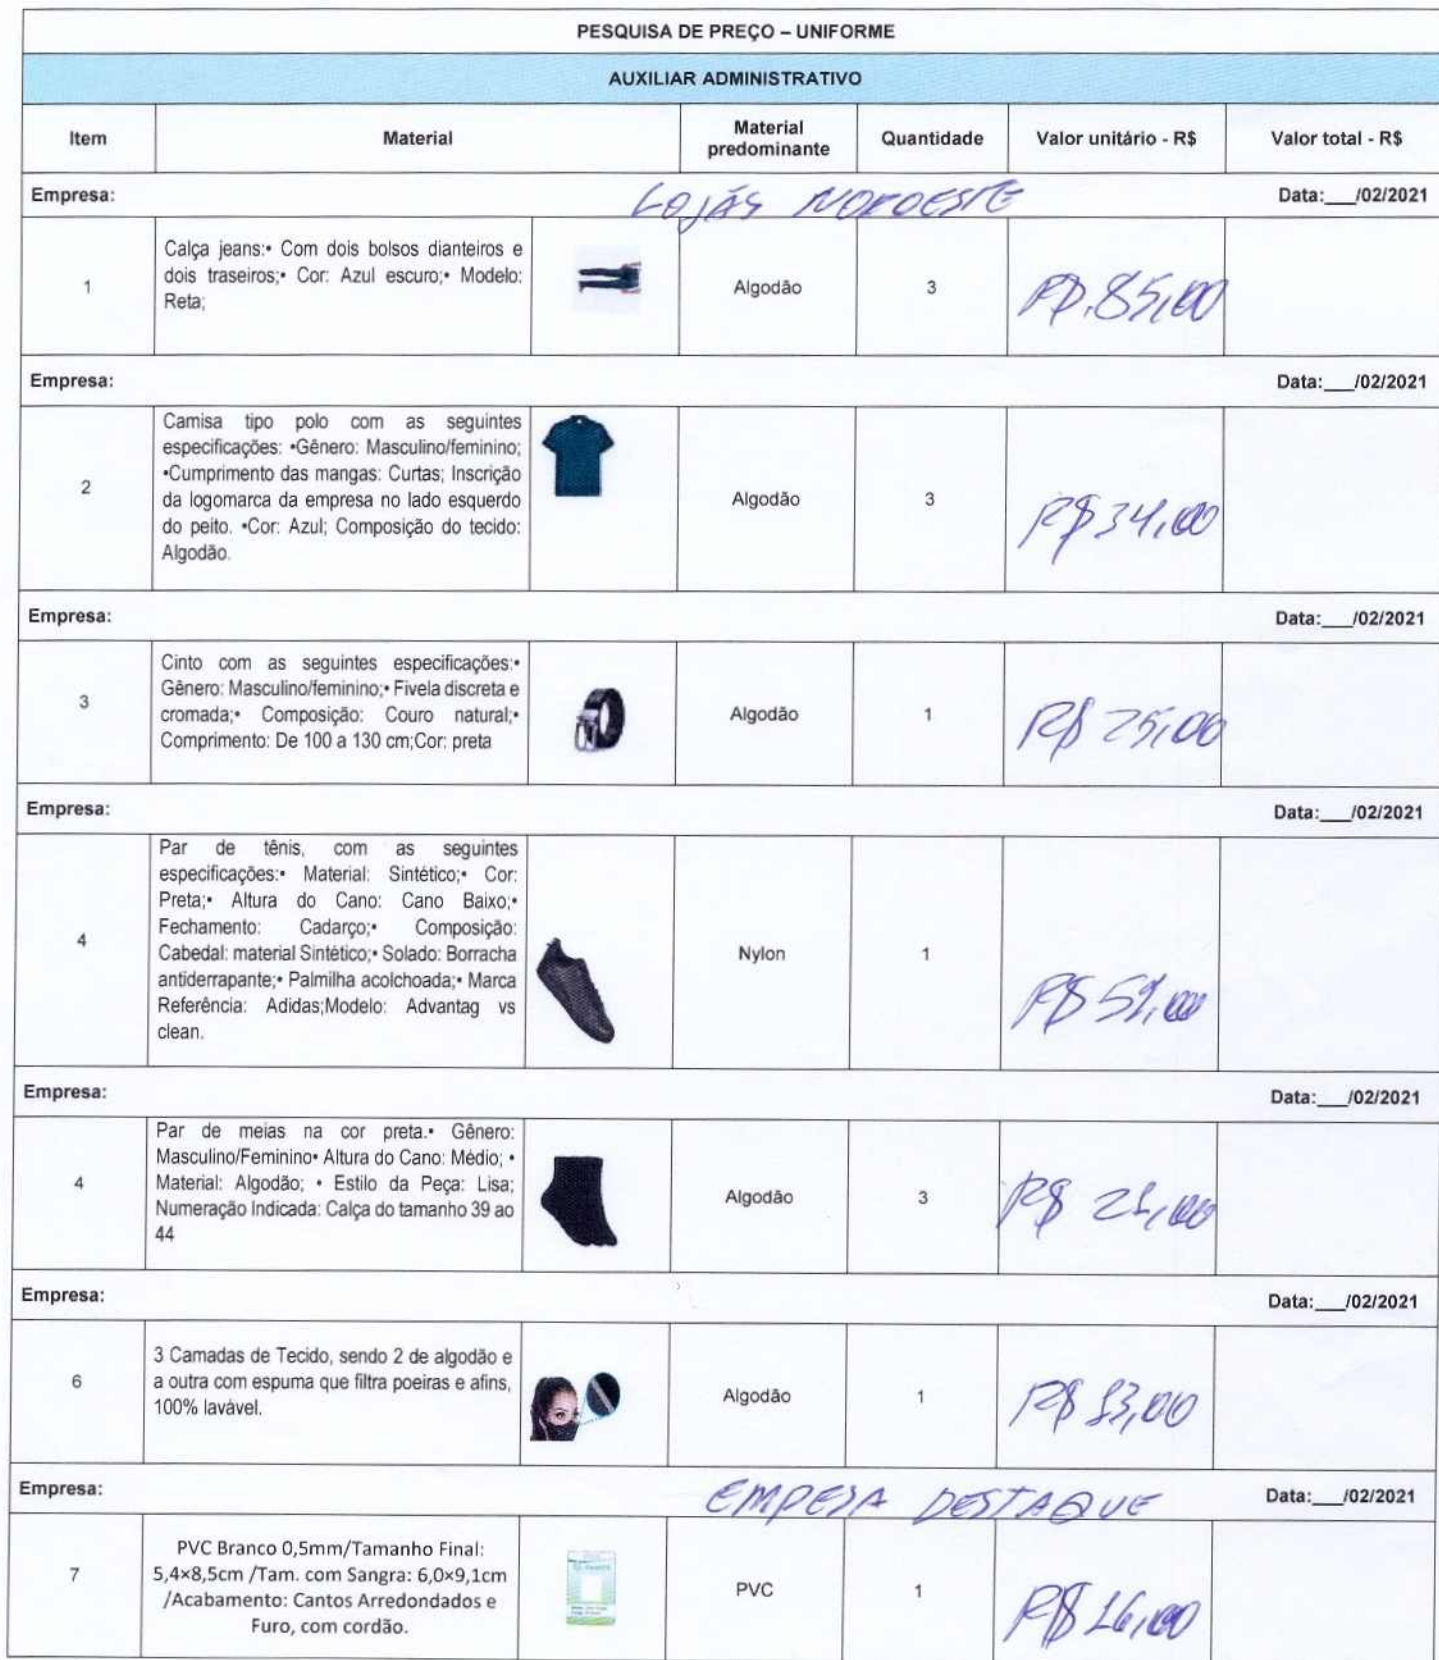 PESQUISA DE PREÇO – UNIFORME
AUXILIAR ADMINISTRATIVO
Item Material Material predominante Quantidade Valor unitário - R$ Valor total - R$
Empresa: LOJÁS NOROESTE Data:___/02/2021
1
Calça jeans:• Com dois bolsos dianteiros e
dois traseiros;• Cor: Azul escuro;• Modelo:
Reta;
Algodão 3 R$.85,00
Empresa: Data:___/02/2021
2
Camisa tipo polo com as seguintes
especificações: •Gênero: Masculino/feminino;
•Cumprimento das mangas: Curtas; Inscrição
da logomarca da empresa no lado esquerdo
do peito. •Cor: Azul; Composição do tecido:
Algodão.
Algodão 3 R$34,00
Empresa: Data:___/02/2021
3
Cinto com as seguintes especificações:•
Gênero: Masculino/feminino;• Fivela discreta e
cromada;• Composição: Couro natural;•
Comprimento: De 100 a 130 cm;Cor: preta
Algodão 1 R$ 25,00
Empresa: Data:___/02/2021
4
Par de tênis, com as seguintes
especificações:• Material: Sintético;• Cor:
Preta;• Altura do Cano: Cano Baixo;•
Fechamento: Cadarço;• Composição:
Cabedal: material Sintético;• Solado: Borracha
antiderrapante;• Palmilha acolchoada;• Marca
Referência: Adidas;Modelo: Advantag vs
clean.
Nylon 1 R$
Empresa: Data:___/02/2021
4
Par de meias na cor preta.• Gênero:
Masculino/Feminino• Altura do Cano: Médio; •
Material: Algodão; • Estilo da Peça: Lisa;
Numeração Indicada: Calça do tamanho 39 ao
44
Algodão 3 R$ 21,00
Empresa: Data:___/02/2021
6
3 Camadas de Tecido, sendo 2 de algodão e
a outra com espuma que filtra poeiras e afins,
100% lavável.
Algodão 1 R$ 13,00
Empresa: EMPESA DESTAQUE Data:___/02/2021
7
PVC Branco 0,5mm/Tamanho Final:
5,4×8,5cm /Tam. com Sangra: 6,0×9,1cm
/Acabamento: Cantos Arredondados e
Furo, com cordão.
PVC 1 R$ 16,00